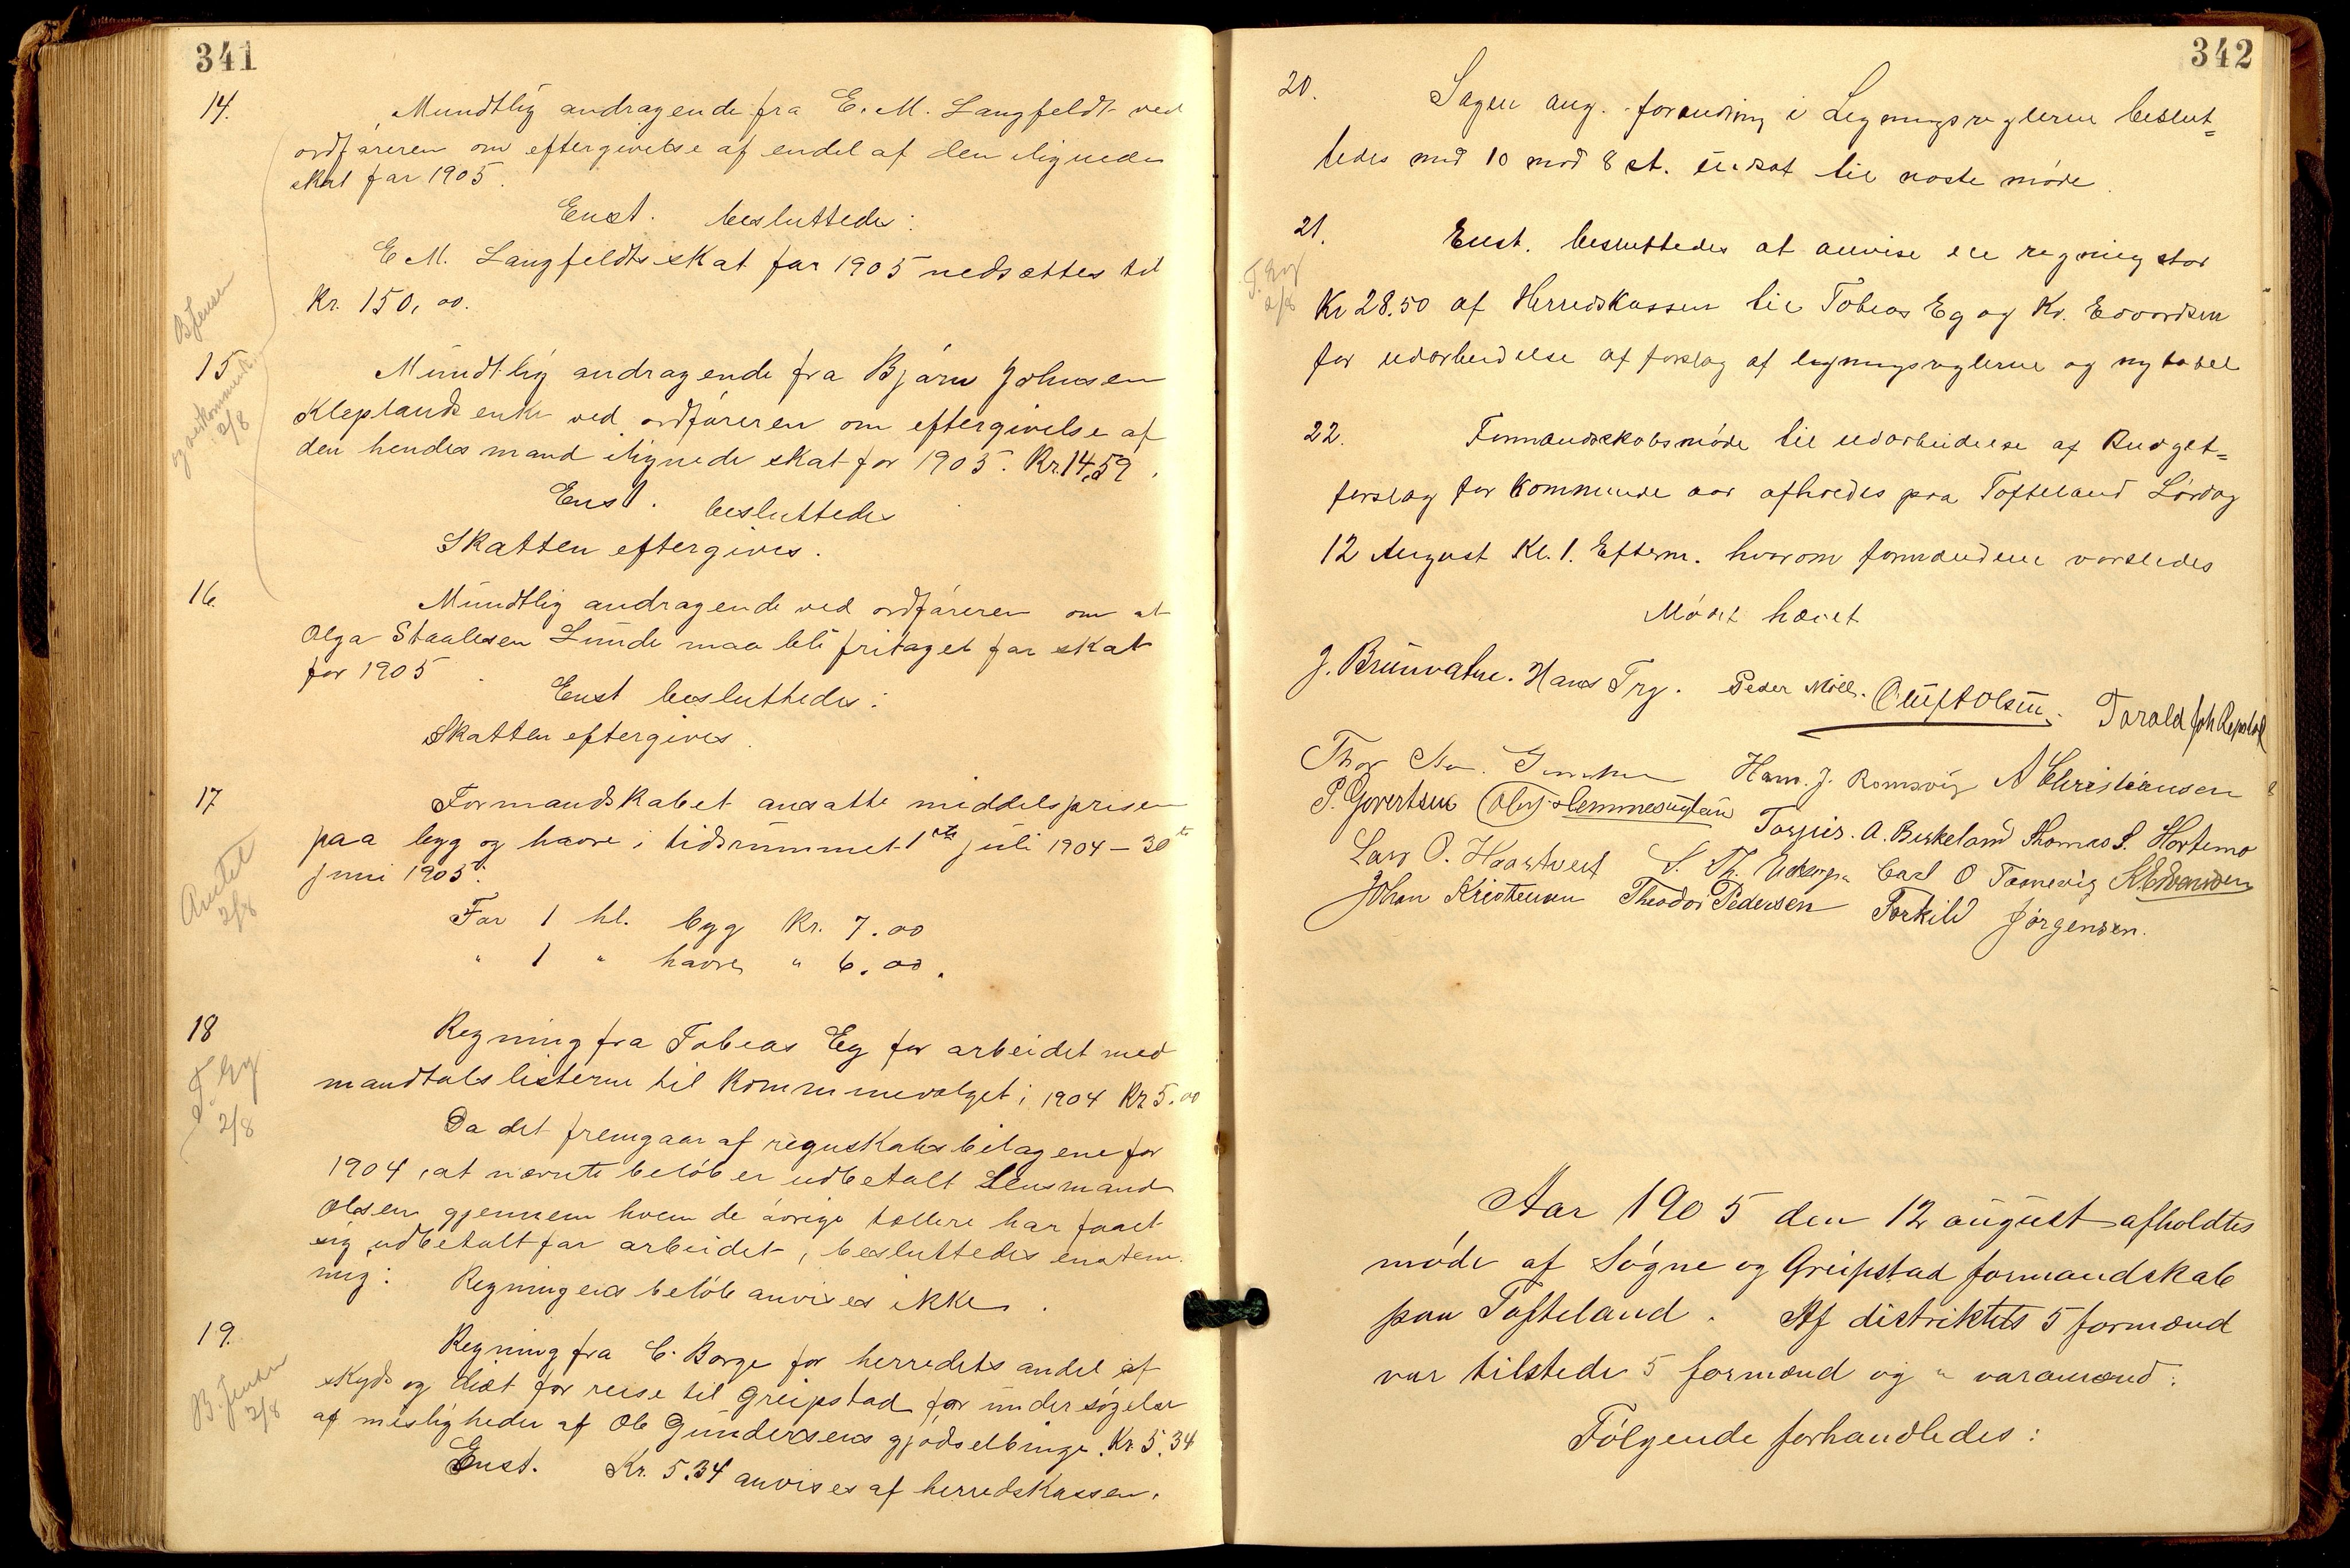 341
14.
Mundtlig andragende fra E. M. Langfeldt ved
ordføreren om eftergivelse af endel af den ilignede
skat før 1905.
Enst. besluttedes:
E M. Langfeldts skat for 1905 nedsættes til
Kr. 150,00.
B Jensen
og vedkommende
2/8
15
Mundtlig andragende fra Bjørn Johnsen
Kleplands enke ved ordføreren om eftergivelse af
den hendes mand ilignede skat for 1905. Kr. 14,59.
Enst. besluttedes
Skatten eftergives.
16.
Mundtlig andragende ved ordføreren om at
Olga Staalesen Lunde maa bli fritaget for skat
for 1905
Enst besluttedes:
Skatten eftergives.
17
Formandskabet ansatte middelsprisen
paa byg og havre i tidsrummet 1ste juli 1904 – 30te
juni 1905:
2/8
For 1 hl. byg Kr. 7.00
" 1 " havre " 6.00.
18
Regning fra Tobias Eg for arbeidet med
mandtalslisterne til Kommunevalget i 1904 Kr 5.00
T. Eg
2/8
Da det fremgaar af regnskabsbilagene for
1904, at nævnte beløb er udbetalt Lensmand
Olsen gjennem hvem de øvrige tællere har faaet
sig udbetalt for arbeidet, besluttedes enstem-
mig: Regningens beløb anvises ikke.
19.
Regning fra C. Borge for herredets andel af
skyds og diæt for reise til Greipstad for undersøgelse
af misligheder af Ole Gundersens gjødselbinge. Kr. 5.34
B. Jensen
2/8
Enst. Kr. 5.34 anvises af herredskassen.
342
20.
Sagen ang. forandring i Ligningsreglerne beslut=
tedes med 10 mod 8 st. udsat til næste møde.
21.
Enst. besluttedes at anvise en regning stor
T. Eg
2/8
Kr 28.50 af Herredskassen til Tobias Eg og Kr. Edvardsen
for udarbeidelse af forslag af ligningsreglerne og ny tabel
22.
Formandskabsmøde til udarbeidelse af Budget=
forslag for kommende aar afholdes paa Tofteland Lørdag
12 August Kl. 1. Efterm. hvorom formændene varsledes
Mødet hævet
J. Brunvatne. Hans Try. Peder Møll. Oluf Olsen. Torald Joh Repstad
Thor Ham. J. Romsvig A Christiansen
P. Govertsen Torjus. A. Birkeland Thomas S. Hortemo
Lars O. Haastvedt S. Th. Carl O Tornevig K Edvardsen
Johan Kristensen Theodor Pedersen Torkild Jørgensen.
Aar 1905 den 12 august afholdtes
møde af Søgne og Greipstad formandskab
paa Tofteland. Af distriktets 5 formænd
var tilstede 5 formænd og " varamænd.
Følgende forhandledes: